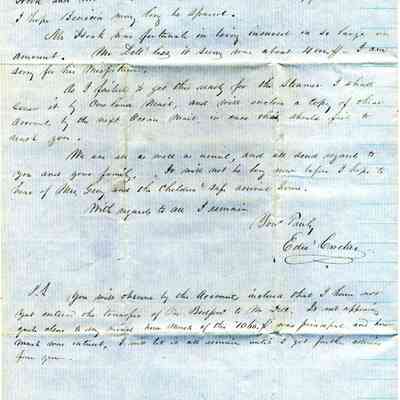 I hope Benicia may long be spared.
Mr Hook was fortunate in being insured in so large an
amount. Mr Dall loss it seems was about I am
sorry for his misfortune.
As I failed to get this ready for the Steamer I shall
send it by Overland Mail, and will enclose a copy of this
Account by the next Ocean Mail, in case this should fail to
reach you.
We are all as well as usual, and all send regards to
you and your family. It will not be long now before I hope to
hear of Mrs Gray and the Children's safe arrival home.
With regards to all I remain
Your Truly
P.S. You will observe by the Account inclosed that I have not
yet entered the transfer of the to Mr Dall. Is not appearing
quite clear to my mind how much of the was principal and how
much was interest, I will let it all remain until I get further advice
from you.